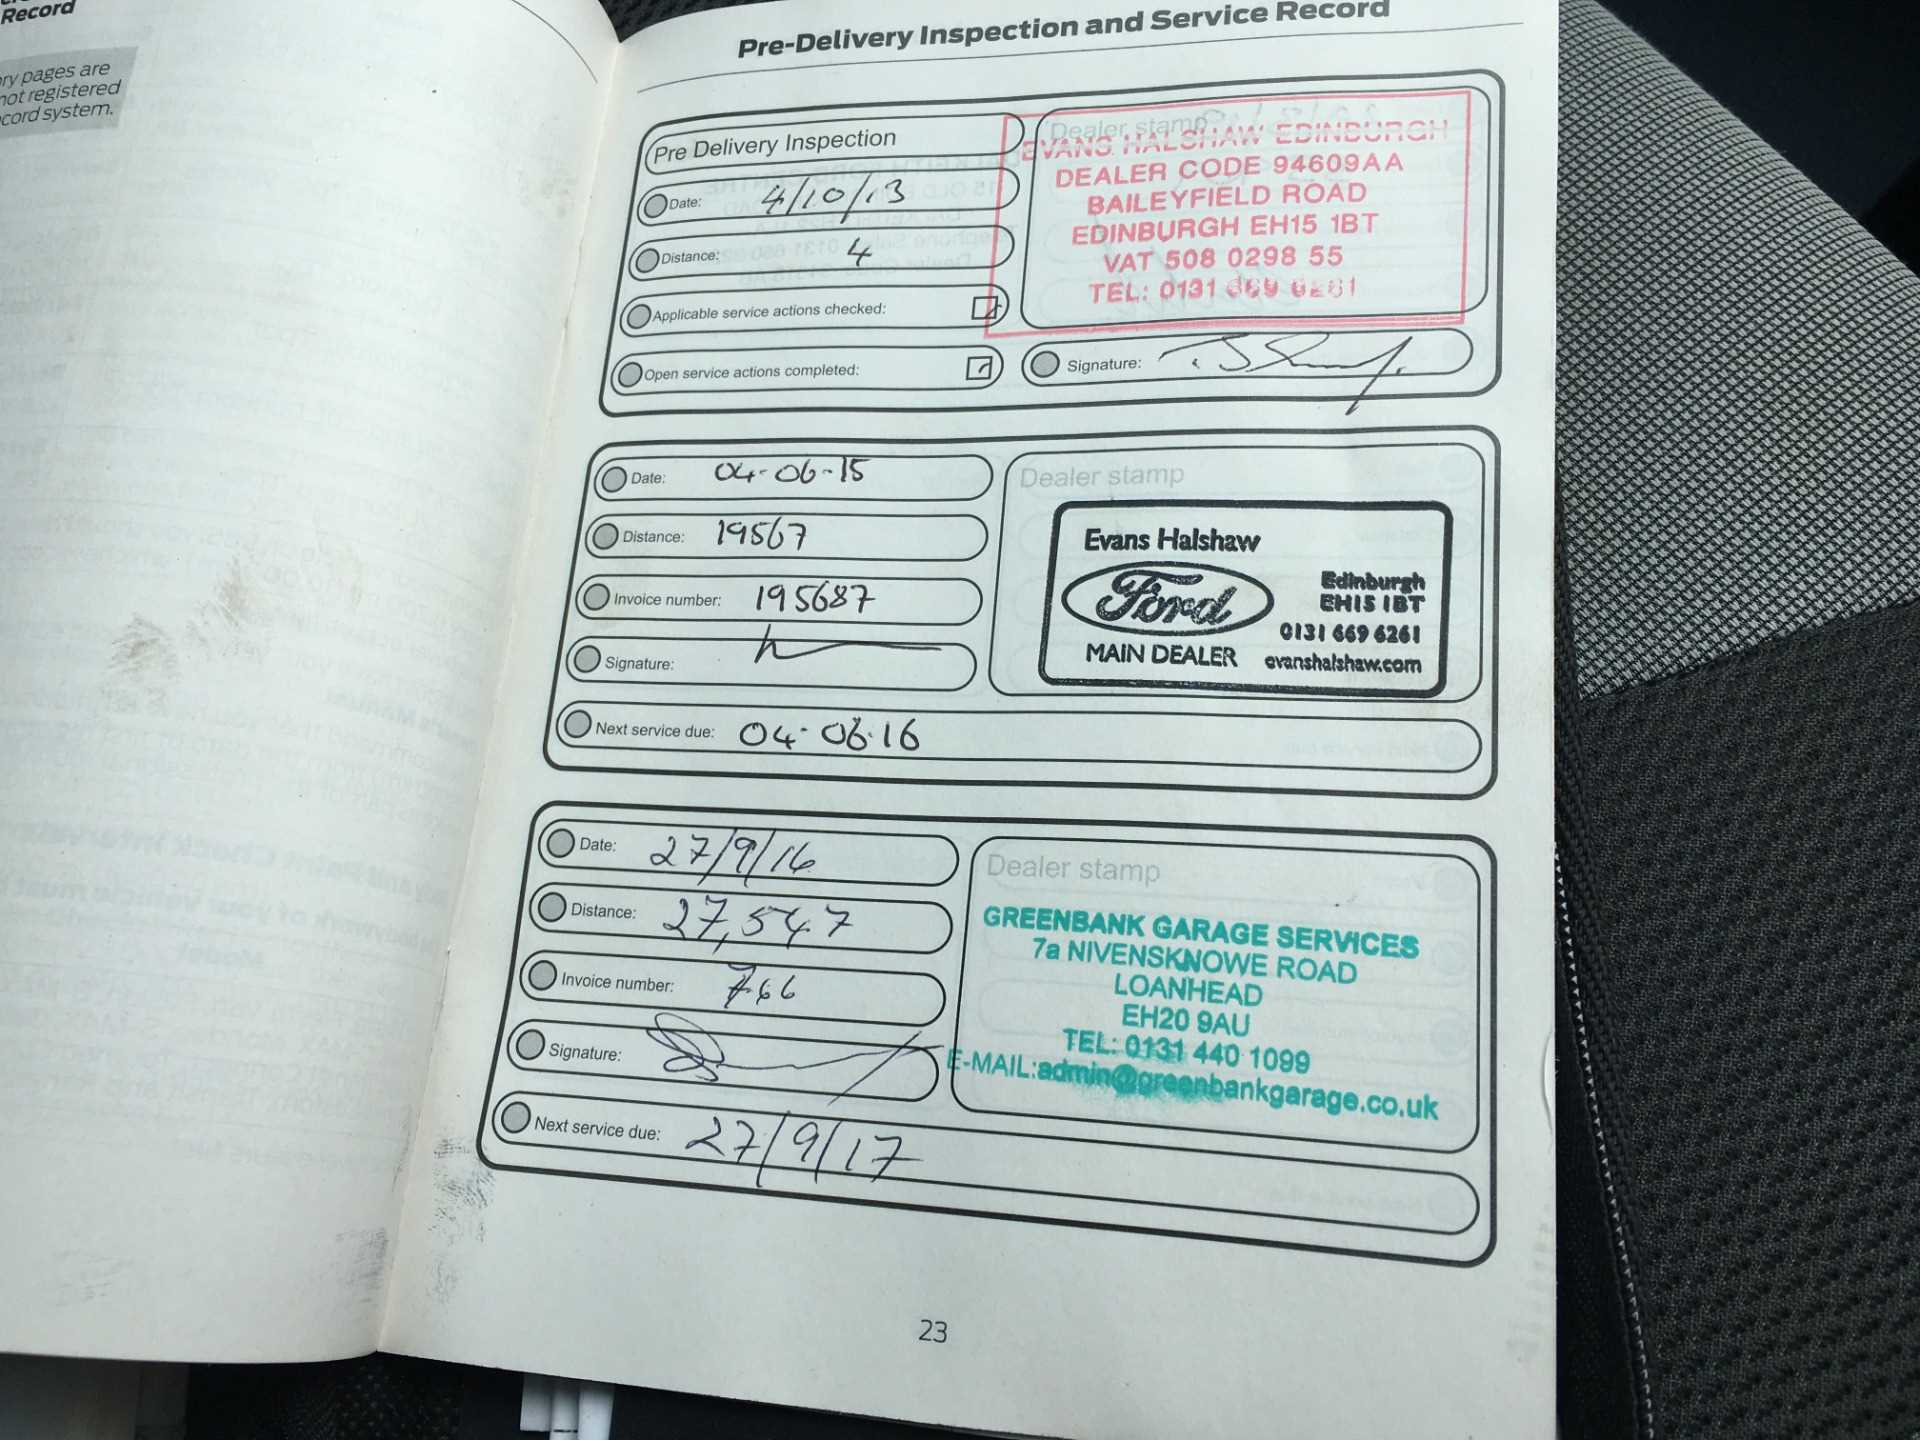 Record
ry pages are
not registered
cord system.
Pre-Delivery Inspection and Service Record
Pre Delivery Inspection
Date: 4/10/13
Distance: 4
Applicable service actions checked:
Open service actions completed:
Dealer stamp
EVANS HALSHAW EDINBURGH
DEALER CODE 94609AA
BAILEYFIELD ROAD
EDINBURGH EH15 1BT
VAT 508 0298 55
TEL: 0131 669 6261
Signature:
Date: 04-06-15
Distance: 19567
Invoice number: 195687
Signature:
Next service due: 04-06-16
Dealer stamp
Evans Halshaw
Ford
MAIN DEALER
Edinburgh
EH15 1BT
0131 669 6261
evanshalshaw.com
Date: 27/9/16
Distance: 27,547
Invoice number: 766
Signature:
Next service due: 27/9/17
Dealer stamp
GREENBANK GARAGE SERVICES
7a NIVENSKNOWE ROAD
LOANHEAD
EH20 9AU
TEL: 0131 440 1099
E-MAIL:admin@greenbankgarage.co.uk
23